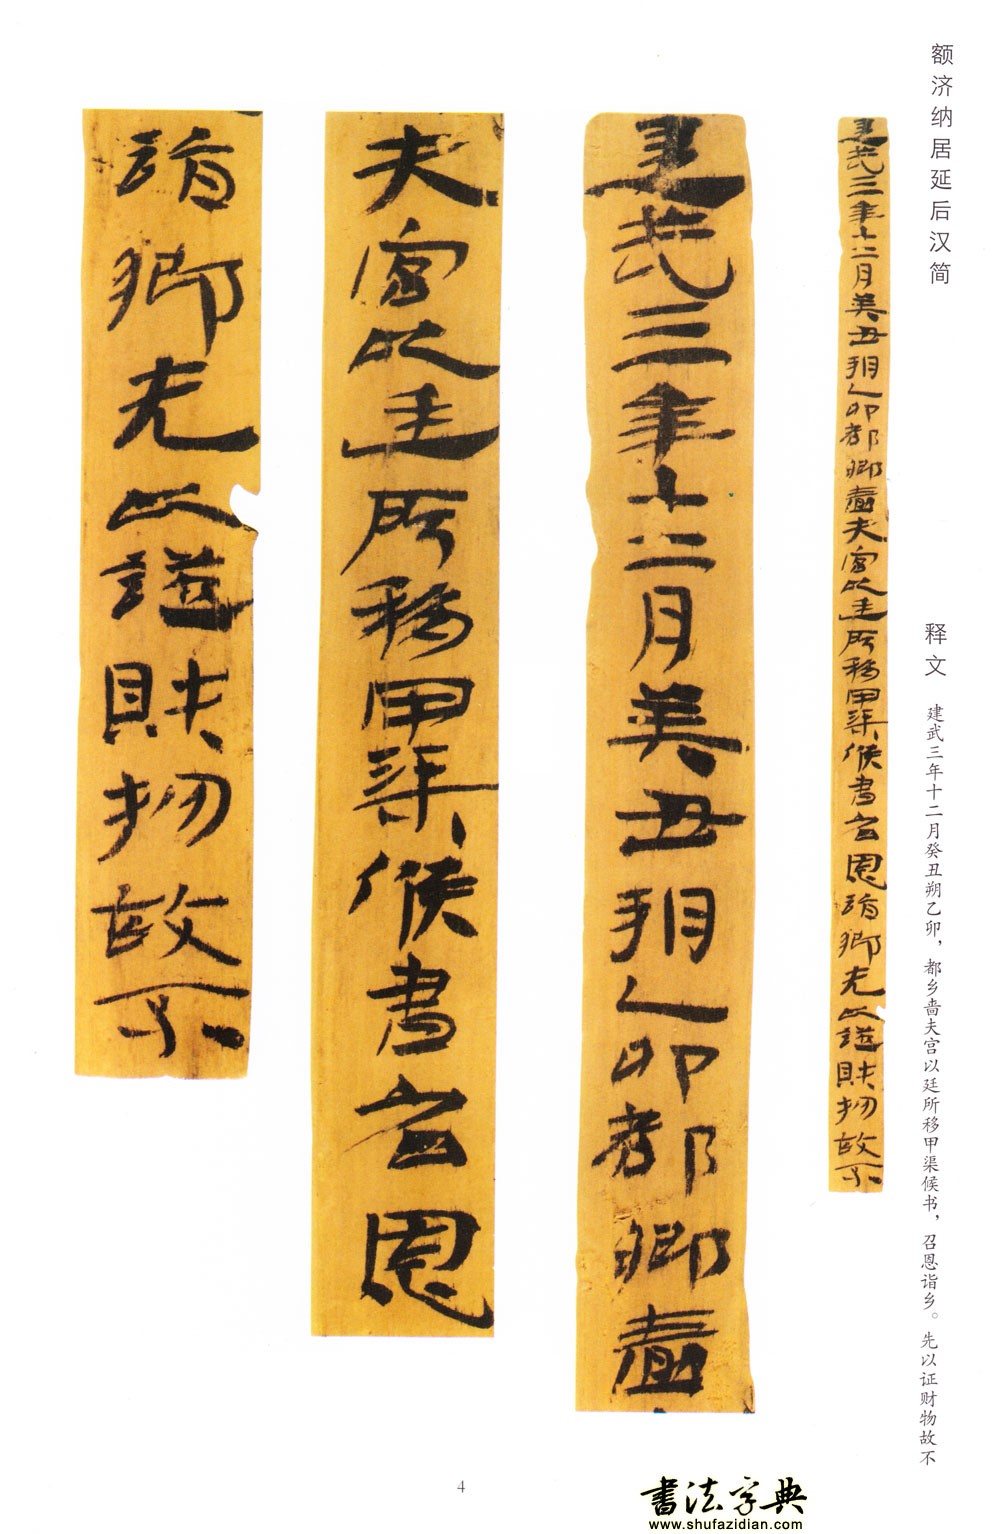 额济纳居延后汉简
释文 建武三年十二月癸丑朔乙卯，都乡啬夫宫以廷所移甲渠候书，召恩诣乡。先以证财物故不
建武三年十二月癸丑朔乙卯都鄉嗇夫宫以廷所移甲渠候書召恩詣鄉先以證財物故不
建武三年十二月癸丑朔乙卯都鄉嗇
夫宫以廷所移甲渠候書召恩
詣鄉先以證財物故不
4
書法字典
www.shufazidian.com